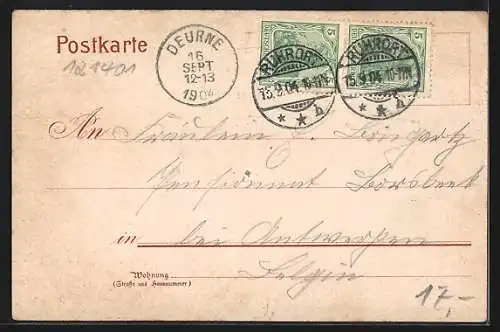 Postkarte
DEURNE
16
SEPT
12-13
1904
RUHRORT
15.9.04.10-11N.
* * h
RUHRORT
15.9.04.10-11N.
* * h
5
5
181401
An Fräulein
Pensionnat Borsbeek
in bei Antwerpen
Belgien
Wohnung
(Straße und Hausnummer)
17,-